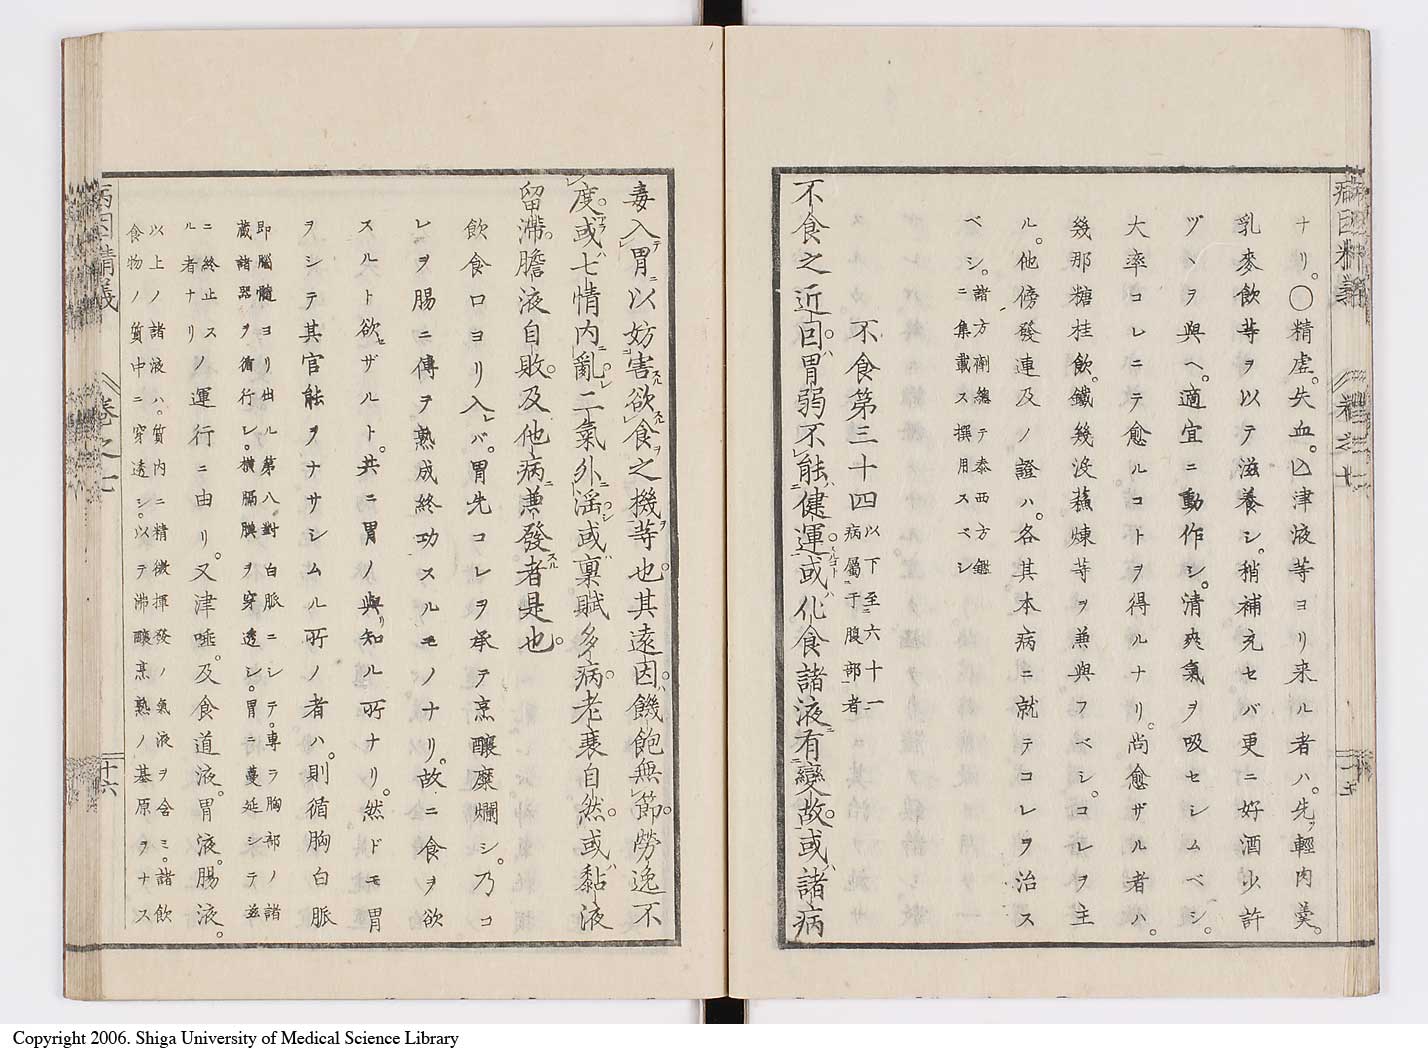 ナリ。〇精虚。失血。亡津液等ヨリ来ル者ハ。先ヅ輕肉羹。
乳麥飲等ヲ以テ滋養シ。稍補充セバ更ニ好酒少許
ヅヽヲ與ヘ。適宜ニ動作シ。清爽氣ヲ吸セシムベシ。
大率コレニテ愈ルコトヲ得ルナリ。尚愈ザル者ハ。
幾那糖桂飲。鐵幾没蘓煉等ヲ兼與フベシ。コレヲ主
ル。他傍發連及ノ證ハ。各其本病ニ就テコレヲ治ス
ベシ。諸方劑總テ泰西方鑑ニ集載ス撰用スベシ
不食第三十四 以下至六十一病屬于腹部者
不食之近因。胃弱不能健運。或化食諸液有變故。或諸病
毒入胃以妨害欲食之機等也。其遠因。饑飽無節。勞逸不
度。或七情内亂。二氣外淫。或稟賦多病。老衰自然。或黏液
留滯。膽液自敗。及他病兼發者是也。
飲食口ヨリ入レバ。胃先コレヲ承テ烹釀糜爛シ。乃コ
レヲ腸ニ傳ヲ熟成終功スルモノナリ。故ニ食ヲ欲
スルト欲ザルト。共ニ胃ノ與リ知ル所ナリ。然ドモ胃
ヲシテ其官能ヲナサシムル所ノ者ハ。則循胸白脈
即腦髓ヨリ出ル第八對白脈ニシテ。專ラ胸部ノ諸
藏諸器ヲ循行シ。横膈膜ヲ穿透シ。胃ニ蔓延シテ玆
ニ終止スル者ナリ ノ運行ニ由リ。又津唾。及食道液。胃液。腸液。
以上ノ諸液ハ。質内ニ精微揮發ノ氣液ヲ含ミ。諸飲
食物ノ質中ニ穿透シ。以テ沸釀烹熟ノ基原ヲナス
病因精義
卷之七
十六